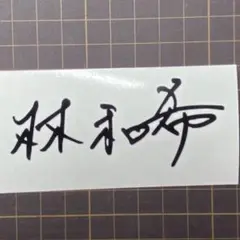 林和希